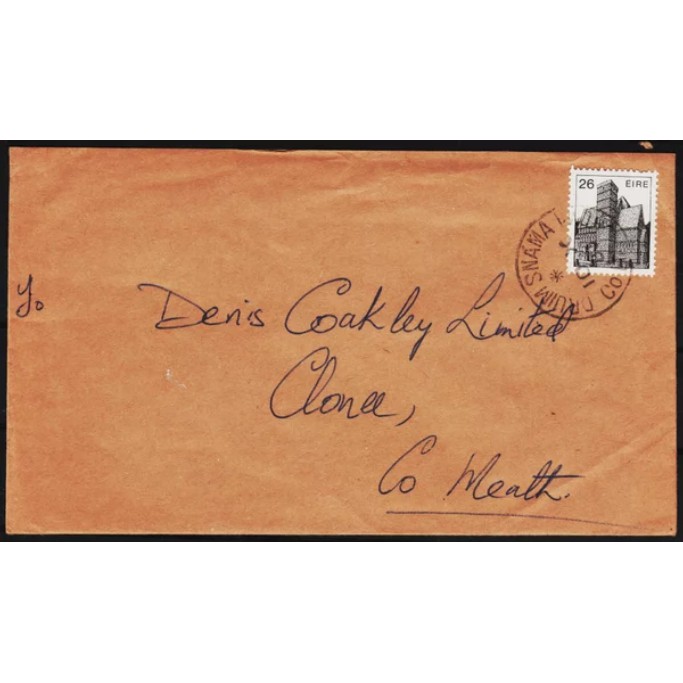 26 ÉIRE
DRUIM SNAMA
CO
To
Denis Coakley Limited
Clonee,
Co Meath.